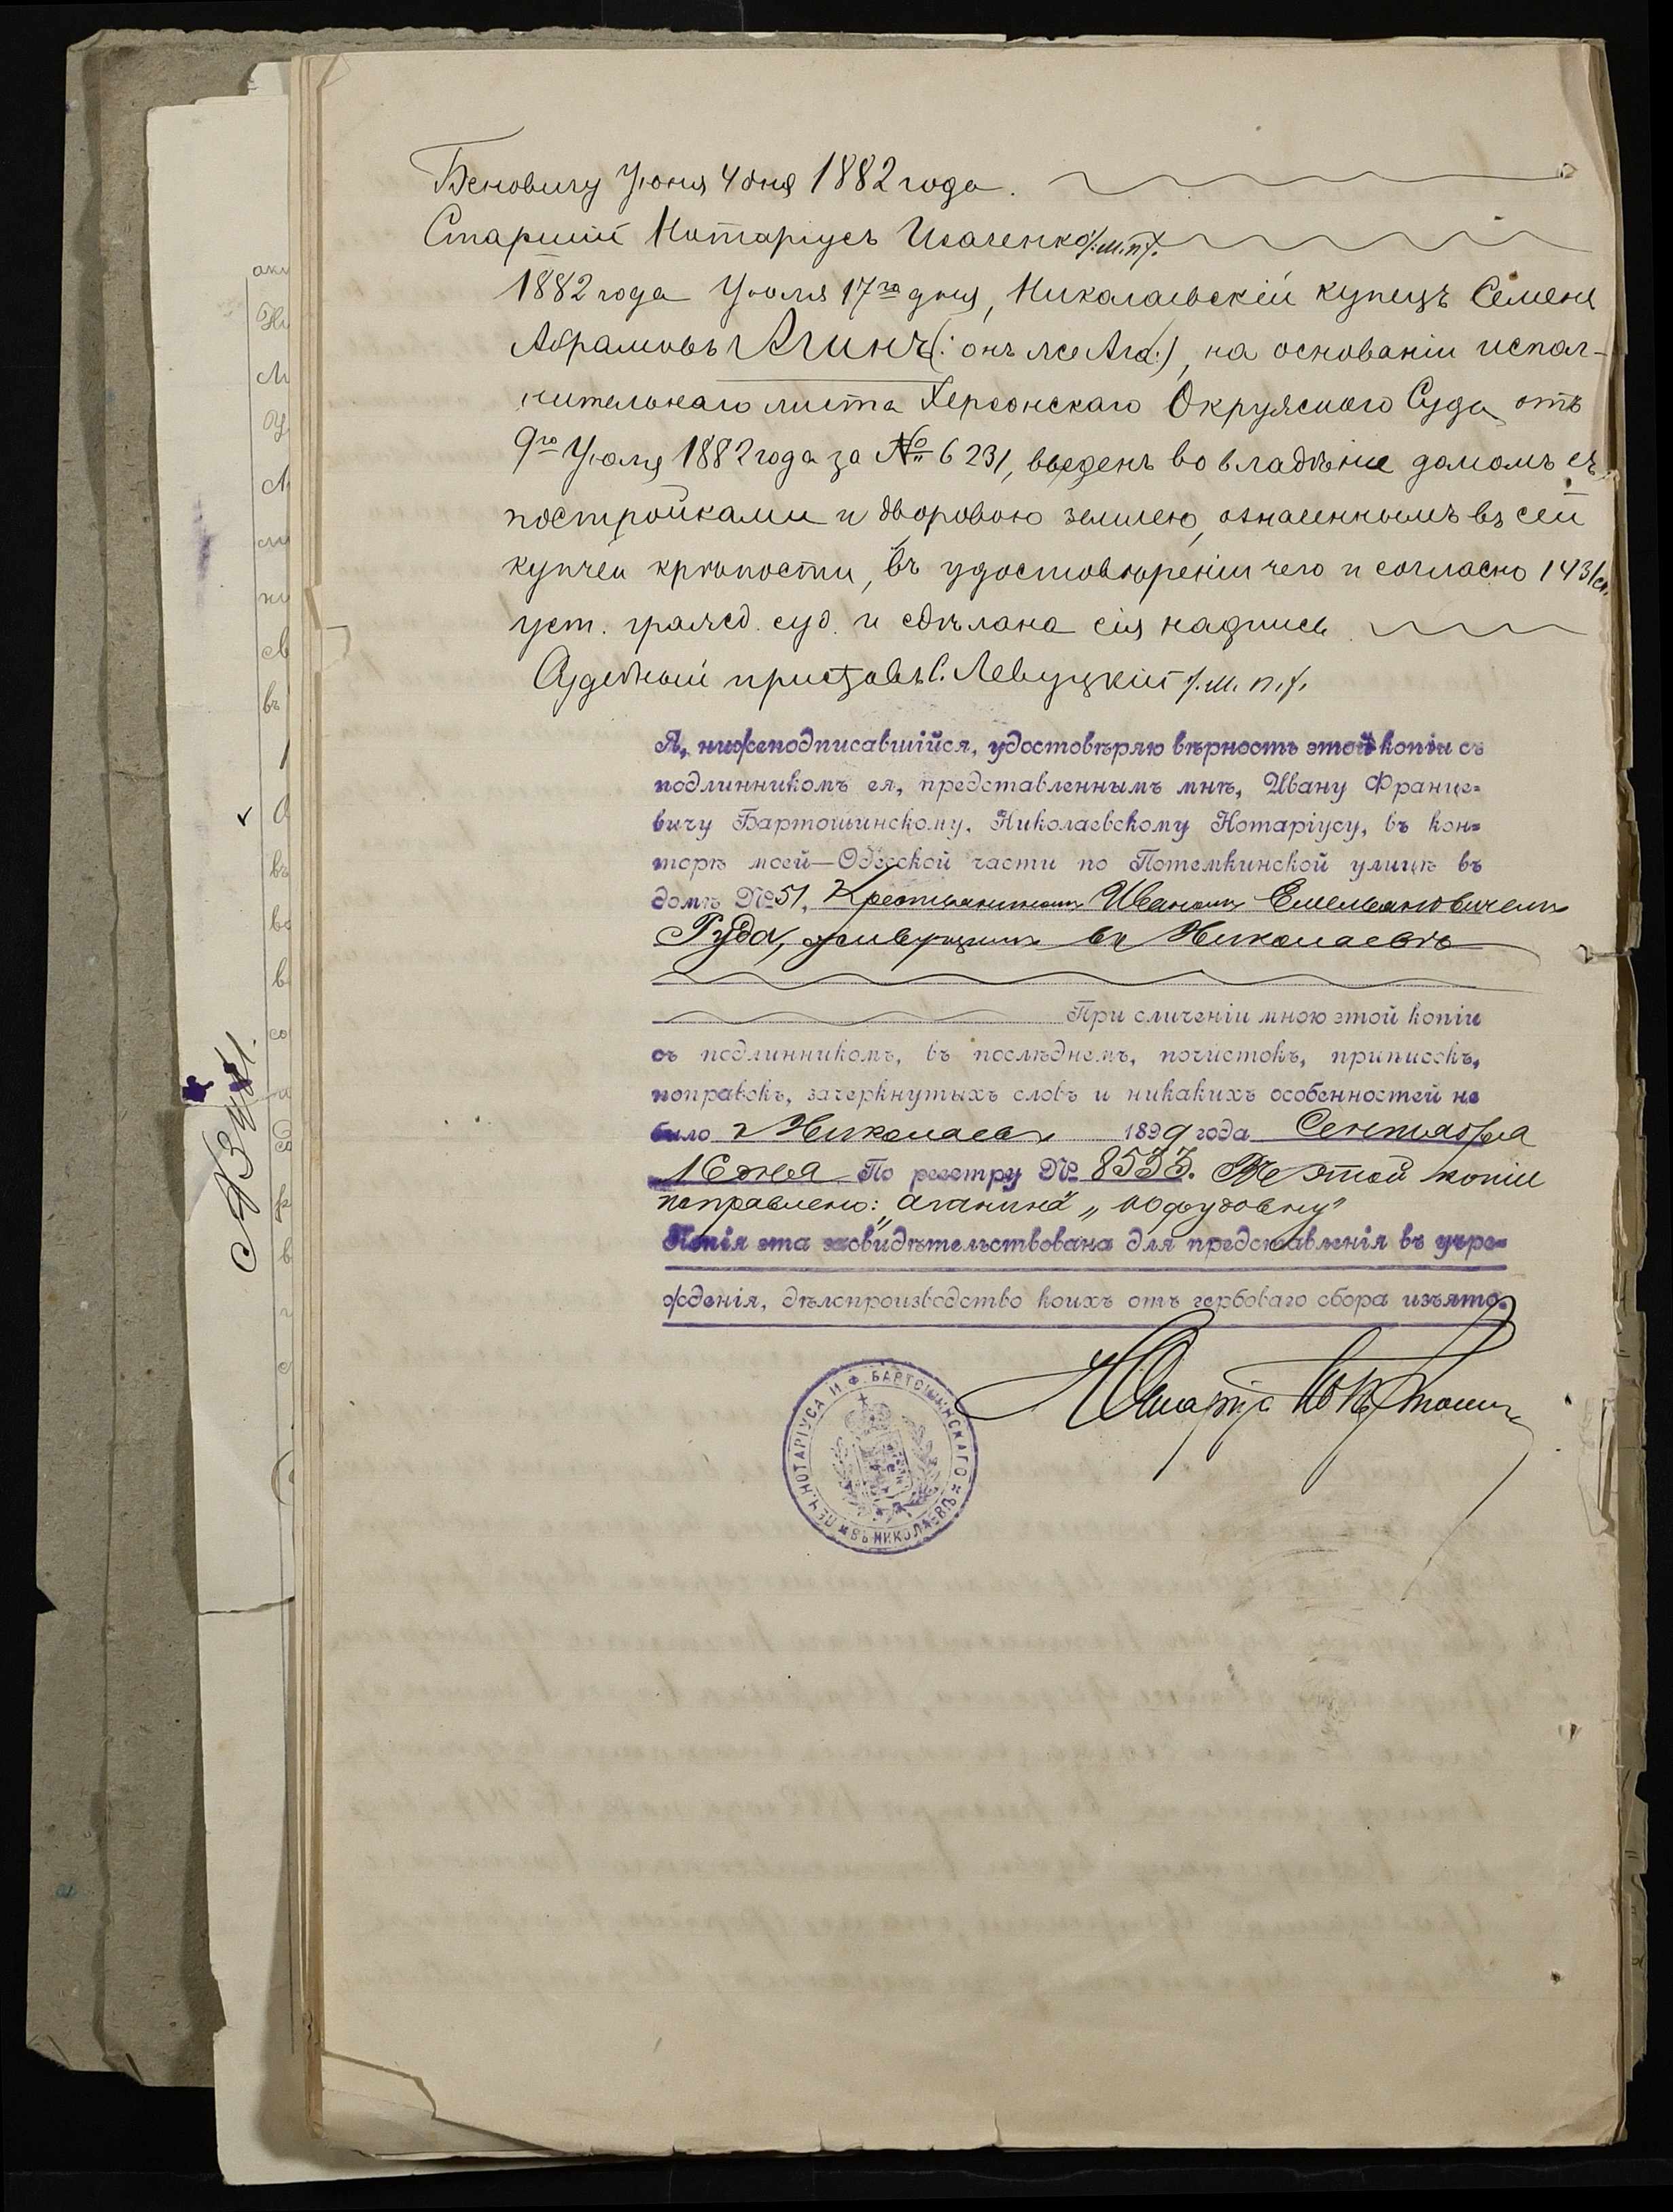 Беновичу Іюня 4 дня 1882 года.
Старшій Нотаріусъ Исаченко /:м.п./.
1882 года Іюля 17го дня, Николаевскій купецъ Семенъ
Абрамовъ Агинъ (: онъ же Ага:), на основаніи испол-
нительнаго листа Херсонскаго Окружнаго Суда отъ
9го Іюля 1882 года за № 6231, введенъ во владѣніе домомъ съ
постройками и дворовою землею, означеннымъ въ сей
купчей крѣпости, въ удостовѣреніи чего и согласно 1431 ст.
уст. гражд. суд. и сдѣлана сія надпись.
Судебный приставъ С. Левуцкій /.м.п./.
Я, нижеподписавшійся, удостовѣряю вѣрность этой копіи съ
подлинникомъ ея, представленнымъ мнѣ, Ивану Франце=
вичу Бартошинскому, Николаевскому Нотаріусу, въ кон=
торѣ моей—Одесской части по Потемкинской улицѣ въ
домѣ № 51, Крестьяниномъ Иваномъ Емельяновичемъ
Руда, живущимъ въ Николаевѣ
При сличеніи мною этой копіи
съ подлинникомъ, въ послѣднемъ, почистокъ, приписокъ,
поправокъ, зачеркнутыхъ словъ и никакихъ особенностей не
было г Николаевъ 1899 года Сентября
16 дня По реестру № 8533. Въ этой копіи
поправлено:
Копія эта засвидѣтельствована для представленія въ учре=
жденія, дѣлопроизводство коихъ отъ гербоваго сбора изъято.
Нотаріусъ
ПЕЧ. НОТАРІУСА И. Ф. БАРТОШИНСКАГО ВЪ НИКОЛАЕВѢ